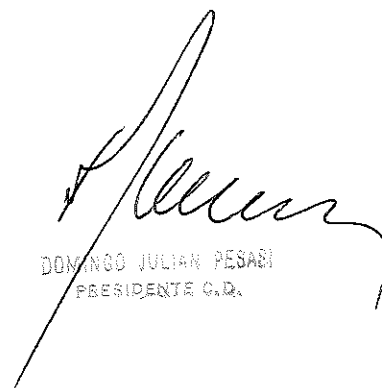 DOMINGO JULIAN PESASI
PRESIDENTE C.D.